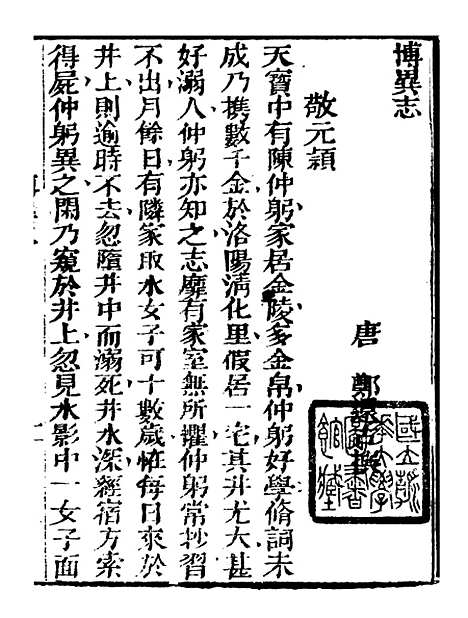 博異志
唐 鄭還古撰
敬元頴
天寶中有陳仲躬家居金陵多金帛仲躬好學脩詞未
成乃携數千金於洛陽清化里假居一宅其井尤大甚
好溺人仲躬亦知之志靡有家室無所懼仲躬常抄習
不出月餘日有隣家取水女子可十數歲怪每日來於
井上則逾時不去忽墮井中而溺死井水深經宿方索
得屍仲躬異之閑乃窺於井上忽見水影中一女子面